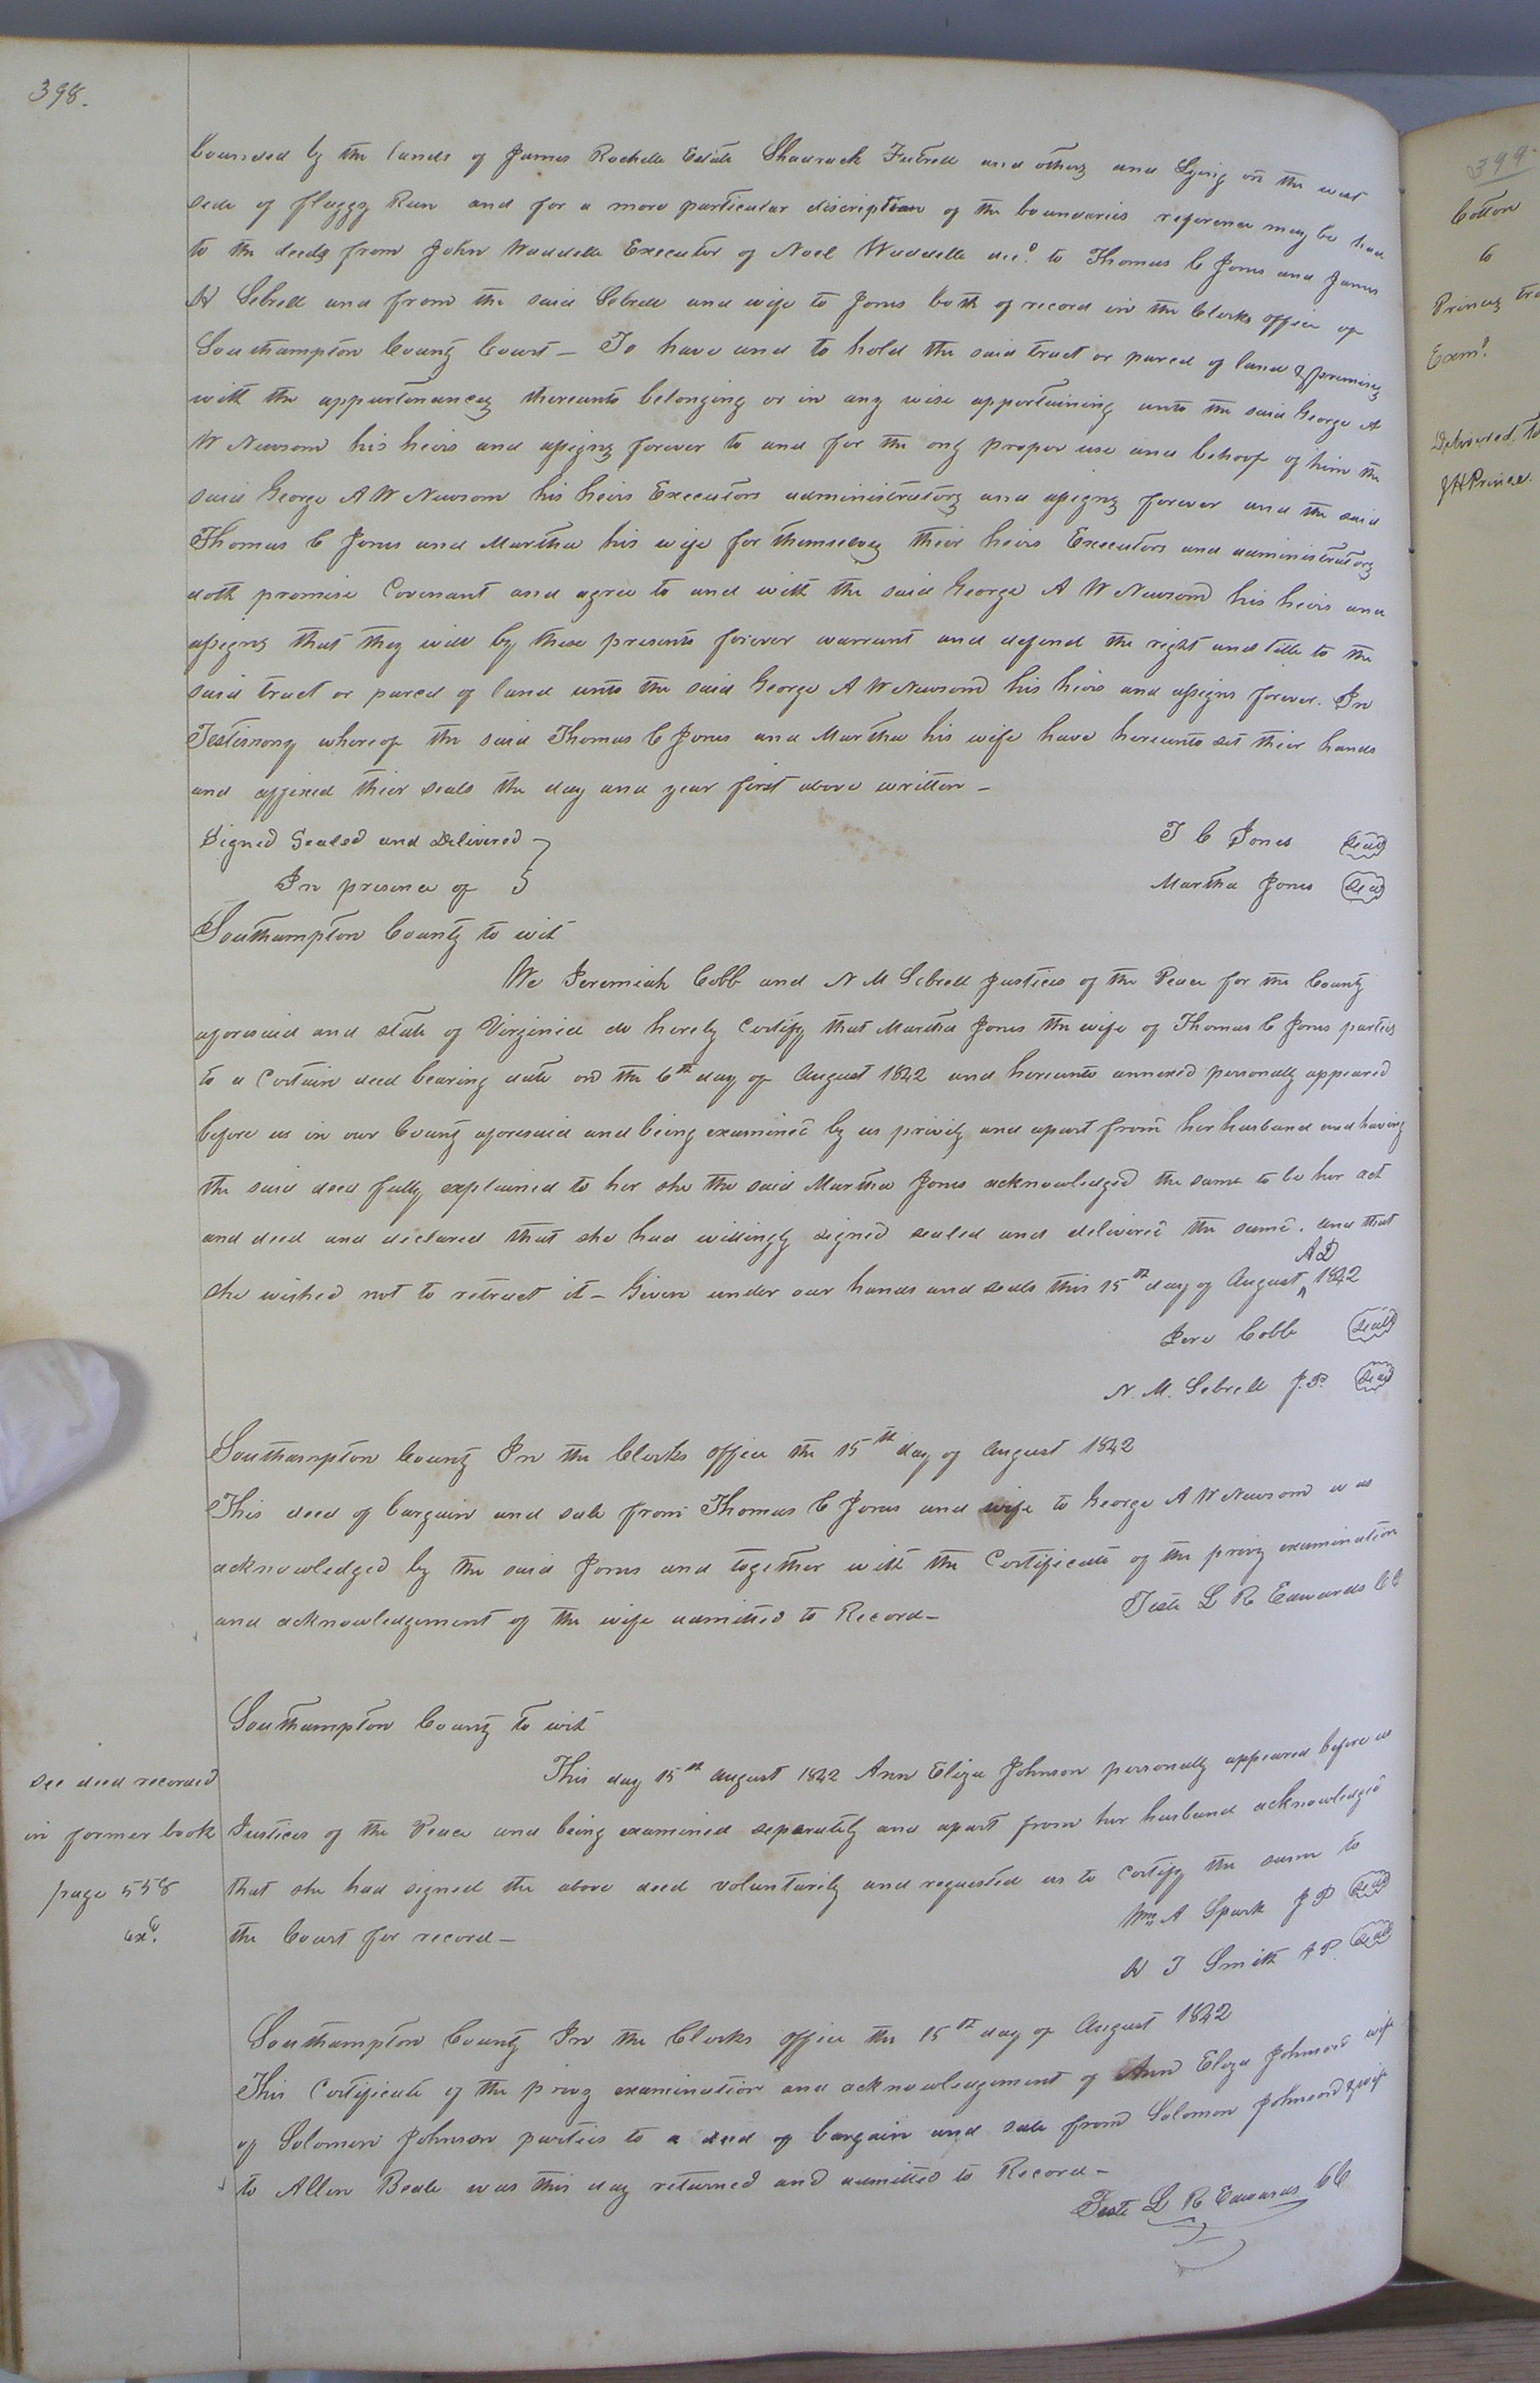 398.
bounded by the lands of James Rochelle Estate Shadrach Futrell and others and Lying on the west
side of flaggy Run and for a more particular discription of the boundaries reference may be had
to the deeds from John Waddelle Executor of Noel Waddelle decd. to Thomas C Jones and James
W Sebrell and from the said Sebrell and wife to Jones both of record in the Clerks office of
Southampton County Court - To have and to hold the said tract or parcel of land & premises
with the appurtenances thereunto belonging or in any wise appertaining unto the said George A
W Newsom his heirs and assigns forever to and for the only proper use and behoof of him the
said George A W Newsom his heirs Executors administrators and assigns forever and the said
Thomas C Jones and Martha his wife for themselves their heirs Executors and administrators
doth promise Covenant and agree to and with the said George A W Newsom his heirs and
assigns that they will by these presents forever warrant and defend the right and title to the
said tract or parcel of land unto the said George A W Newsom his heirs and assigns forever. In
Testimony whereof the said Thomas C Jones and Martha his wife have hereunto set their hands
and affixed their seals the day and year first above written -
Signed Sealed and Delivered } T C Jones Seal
In presence of } Martha Jones Seal
Southampton County to wit
We Jeremiah Cobb and N M Sebrell Justices of the Peace for the County
aforesaid and state of Virginia do hereby Certify that Martha Jones the wife of Thomas C Jones parties
to a Certain deed bearing date on the 6th day of August 1842 and hereunto annexed personally appeared
before us in our County aforesaid and being examined by us privily and apart from her husband and having
the said deed fully explained to her she the said Martha Jones acknowledged the same to be her act
and deed and declared that she had willingly signed sealed and delivered the same. and that
she wished not to retract it - Given under our hands and seals this 15th day of August AD 1842
Jere Cobb Seal
N. M. Sebrell J.P. Seal
Southampton County In the Clerks office the 15th day of August 1842
This deed of bargain and sale from Thomas C Jones and wife to George A W Newsom was
acknowledged by the said Jones and together with the Certificate of the privy examination
and acknowledgement of the wife admitted to Record -
Teste L R Edwards CC
Southampton County to wit
This day 15th August 1842 Ann Eliza Johnson personally appeared before us
Justices of the Peace and being examined separately and apart from her husband acknowledged
that she had signed the above deed voluntarily and requested us to certify the same to
the Court for record -
Wm A Spark J P Seal
W J Smith J P. Seal
see deed recorded
in former book
page 558
exd.
Southampton County In the Clerks office the 15th day of August 1842
This Certificate of the privy examination and acknowledgement of Ann Eliza Johnson wife
of Solomon Johnson parties to a deed of bargain and sale from Solomon Johnson & wife
to Allen Beale was this day returned and admitted to Record -
Teste L R Edwards CC
399.
Cotton
to
Princes
Examd.
Delivered to
J H Prince.